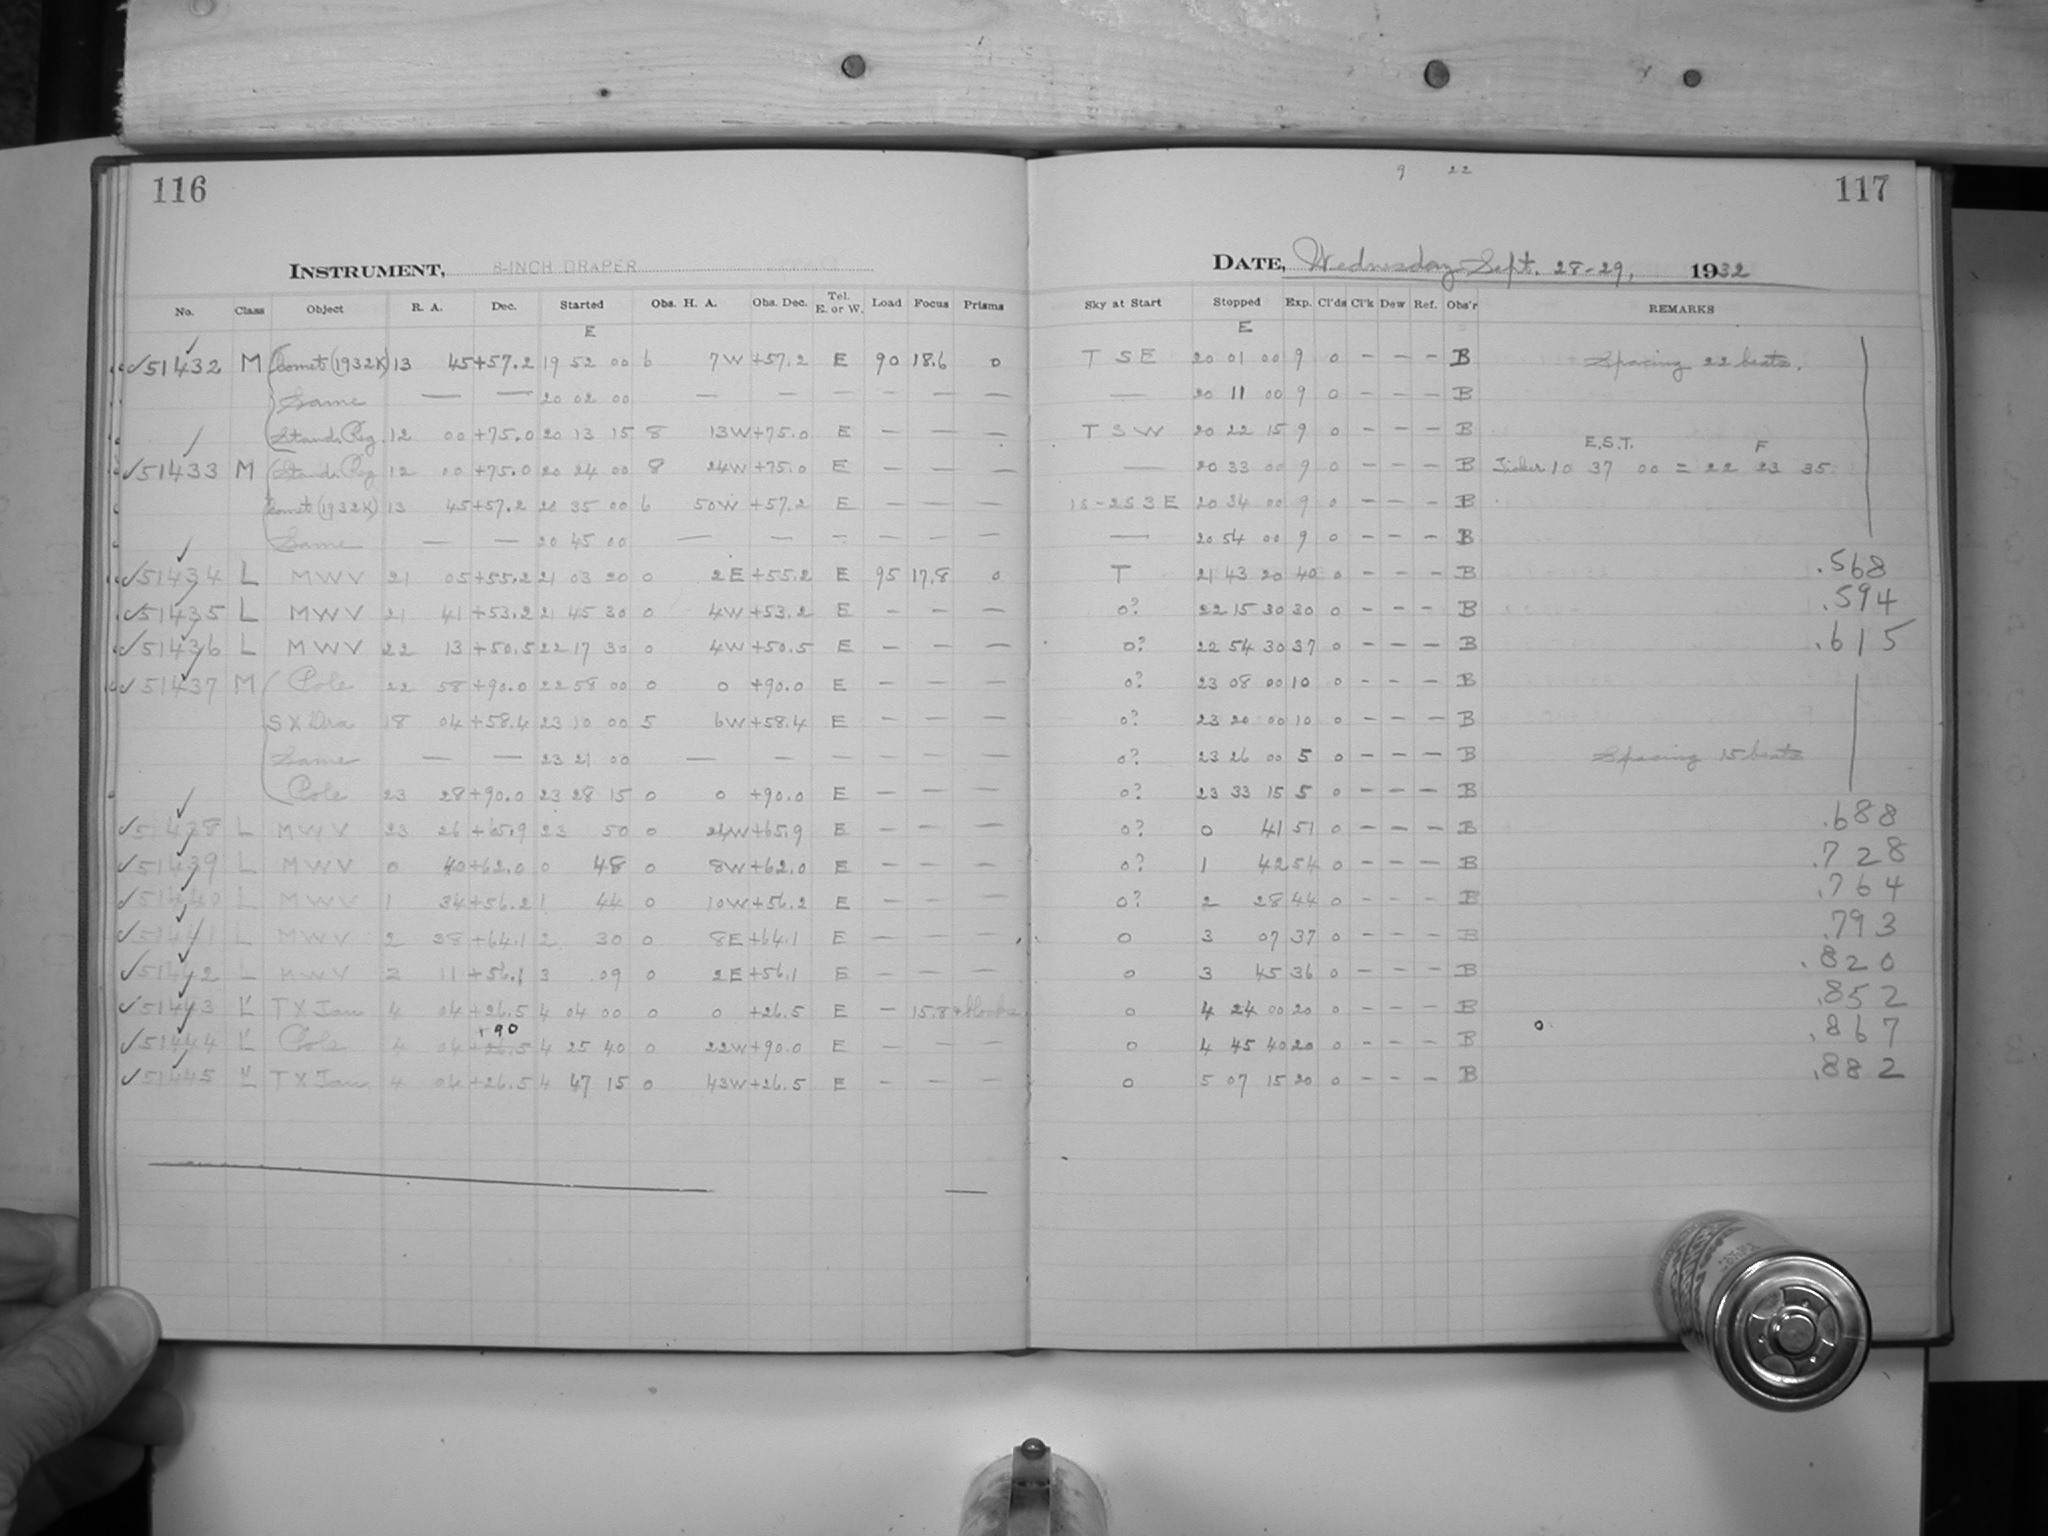 116
INSTRUMENT, 8-INCH DRAPER
No. Class Object R. A. Dec. Started Obs. H. A. Obs. Dec. Tel. E. or W. Load Focus Prisms
E
✓51432 M Comet (1932K) 13 45 +57.2 19 52 00 6 7W +57.2 E 90 18.6 0
Same — — 20 02 00 — — — — — —
Stand. Reg. 12 00 +75.0 20 13 15 8 13W +75.0 E — — —
✓51433 M Stand. Reg 12 00 +75.0 20 24 00 8 24W +75.0 E — — —
Comet (1932K) 13 45 +57.2 20 35 00 6 50W +57.2 E — — —
Same — — 20 45 00 — — — — — —
✓51434 L MWV 21 05 +55.2 21 03 20 0 2E +55.2 E 95 17.8 0
✓51435 L MWV 21 41 +53.2 21 45 30 0 4W +53.2 E — — —
✓51436 L MWV 22 13 +50.5 22 17 30 0 4W +50.5 E — — —
✓51437 M Pole 22 58 +90.0 22 58 00 0 0 +90.0 E — — —
SX Dra 18 04 +58.4 23 10 00 5 6W +58.4 E — — —
Same — — 23 21 00 — — — — — —
Pole 23 28 +90.0 23 28 15 0 0 +90.0 E — — —
✓51438 L MWV 23 26 +65.9 23 50 0 24W +65.9 E — — —
✓51439 L MWV 0 40 +62.0 0 48 0 8W +62.0 E — — —
✓51440 L MWV 1 34 +56.2 1 44 0 10W +56.2 E — — —
✓51441 L MWV 2 38 +64.1 2 30 0 8E +64.1 E — — —
✓51442 L MWV 3 11 +56.1 3 09 0 2E +56.1 E — — —
✓51443 L' TX Tau 4 04 +26.5 4 04 00 0 0 +26.5 E — 15.8
+90
✓51444 L' Pole 4 04 +26.5 4 25 40 0 22W +90.0 E — — —
✓51445 L' TX Tau 4 04 +26.5 4 47 15 0 43W +26.5 E — — —
9 22
117
DATE, Wednesday Sept. 28-29, 1932
Sky at Start Stopped Exp. Cl'ds Cl'k Dew Ref. Obs'r REMARKS
E
T S E 20 01 00 9 0 — — — B Spacing 22 beats.
— 20 11 00 9 0 — — — B
T S W 20 22 15 9 0 — — — B
E.S.T. F
— 20 33 00 9 0 — — — B Ticker 10 37 00 = 22 23 35
1S-2S 3E 20 34 00 9 0 — — — B
— 20 54 00 9 0 — — — B
T 21 43 20 40 0 — — — B .568
0? 22 15 30 30 0 — — — B .594
0? 22 54 30 37 0 — — — B .615
0? 23 08 00 10 0 — — — B
0? 23 20 00 10 0 — — — B
0? 23 26 00 5 0 — — — B Spacing 15 beats
0? 23 33 15 5 0 — — — B
0? 0 41 51 0 — — — B .688
0? 1 42 54 0 — — — B .728
0? 2 28 44 0 — — — B .764
0 3 07 37 0 — — — B .793
0 3 45 36 0 — — — B .820
0 4 24 00 20 0 — — — B .852
0 4 45 40 20 0 — — — B 0 .867
0 5 07 15 20 0 — — — B .882